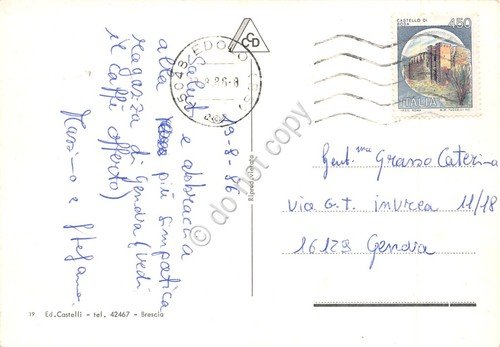 19-8-86
Saluti e abbracci
alla più simpatica
ragazza di Genova (vedi
il caffè offerto)
Massimo e Stefania.
CASTELLO DI
ROSA 450
ITALIA
Gent.ma Grasso Caterina
via G.T. invrea 11/18
16129 Genova
do not copy
19 Ed. Castelli - tel. 42467 - Brescia